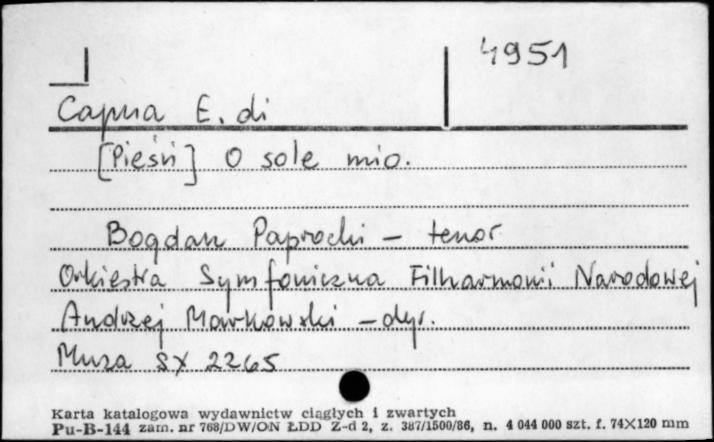 4951
Capua E. di
[Pieśń] O sole mio.
Bogdan Paprocki - tenor
Orkiestra Symfoniczna Filharmonii Narodowej
Andrzej Markowski - dyr.
Muza SX 2265
Karta katalogowa wydawnictw ciągłych i zwartych
Pu-B-144 zam. nr 768/DW/ON ŁDD Z-d 2, z. 387/1500/86, n. 4 044 000 szt. f. 74X120 mm